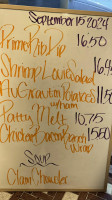 September 15 2024
Prime Rib Dip
16.50
Shrimp Louie Salad
16.95
Au Gratin Potatoes
w/ham
Patty Melt 10.75
Chicken Bacon Ranch
Wrap
15.50
Soup
Clam Chowder